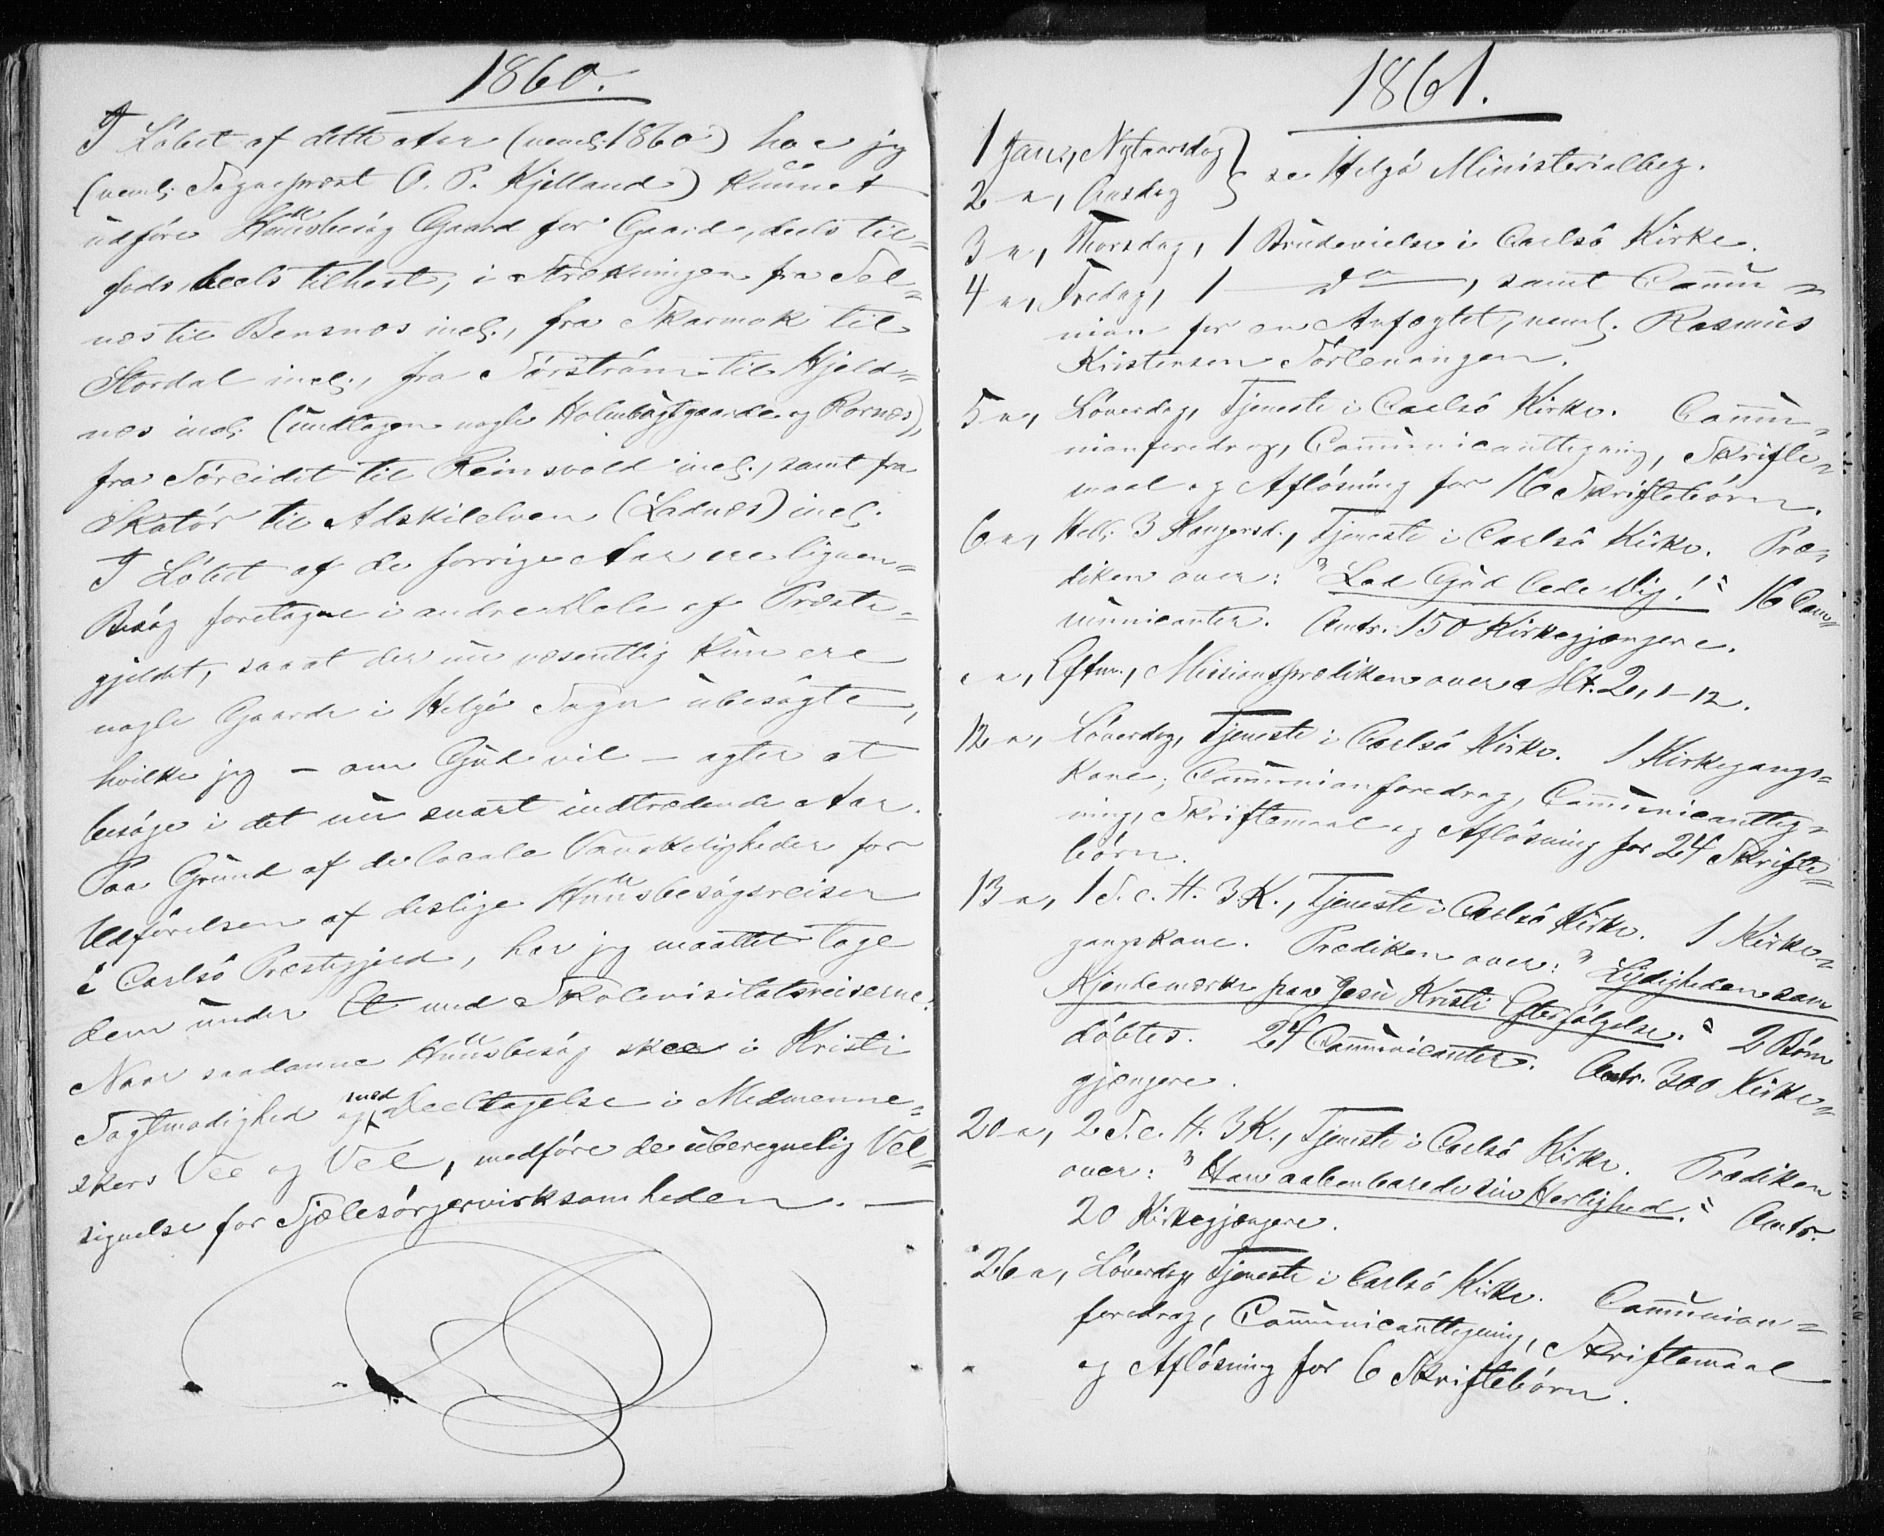 1860.
I Löbet af dette Aar (neml. 1860) har jeg
(neml. Sognepræst O. P. Kjelland) kunnet
udföre Huusbesög Gaard for Gaard, deels til-
fods, deels tilhest, i Strækningen fra Sel-
næs til Bensnæs incl., fra Skarmok til
Stordal incl., fra Sörström til Hjeld-
næs incl. (undtagen nogle Holmbugtgaarde og Rornæs),
fra Söreidet til Reinsvold incl., samt fra
Skatör til Adskilelven (Ladnæs) incl.
I Löbet af de forrige Aar ere lignen-
Besög foretagne i andre Dele af Præste-
gjeldet, saaat der nu væsentlig kun ere
nogle Gaarde i Helgö Sogn ubesögte,
hvilke jeg – om Gud vil – agter at
besöge i det nu snart indtrædende Aar.
Paa Grund af de locale Vanskeligheder for
Udförelsen af deslige Huusbesögsreiser
i Carlsö Præstegjeld, har jeg maattet tage
dem under Et med Skolevisitatsreiserne.
Naar saadanne Huusbesög skee i Kristi
Sagtmodighed og med Deeltagelse i Medmenne-
skers Vee og Vel, medföre de uberegnelig Vel-
signelse for Sjælesörgervirksomheden. —
1861.
1 Janr, Nytaarsdag } se Helgö Ministerialbog.
2 –, Onsdag
3 –, Thorsdag, 1 Brudevielse i Carlsö Kirke.
4 –, Fredag, 1 — Do —, samt Commu-
nion for en Anfægtet, neml. Rasmus
Kristensen Sörlenangen.
5 –, Löverdag, Tjeneste i Carlsö Kirke. Commu-
nionforedrag, Communicanttegning, Skrifte-
maal og Aflösning for 16 Skriftebörn.
6 –, Hell. 3 Kongersd., Tjeneste i Carlsö Kirke. Præ-
diken over: "Lad Gud lede Dig!" 16 Com-
municanter. Omtr. 150 Kirkegjængere.
" –, Eftm., Missionsprædiken over Mt. 2, 1–12.
12 –, Löverdag, Tjeneste i Carlsö Kirke. 1 Kirkegangs-
kone; Communionforedrag, Communicantteg-
ning, Skriftemaal og Aflösning for 24 Skrifte-
börn.
13 –, 1 S. e. H. 3 K., Tjeneste i Carlsö Kirke. 1 Kirke-
gangskone. Prædiken over: "Lydigheden som
Kjendemærke paa Jesu Kristi Efterfölgelse." 2 Börn
döbtes. 24 Communicanter. Omtr. 300 Kirke-
gjængere.
20 –, 2 S. e. H. 3 K., Tjeneste i Carlsö Kirke. Prædiken
over: "Han aabenbarede sin Herlighed." Omtr.
20 Kirkegjængere.
26 –, Löverdag, Tjeneste i Carlsö Kirke. Communion-
foredrag, Communicanttegning, Skriftemaal
og Aflösning for 6 Skriftebörn.